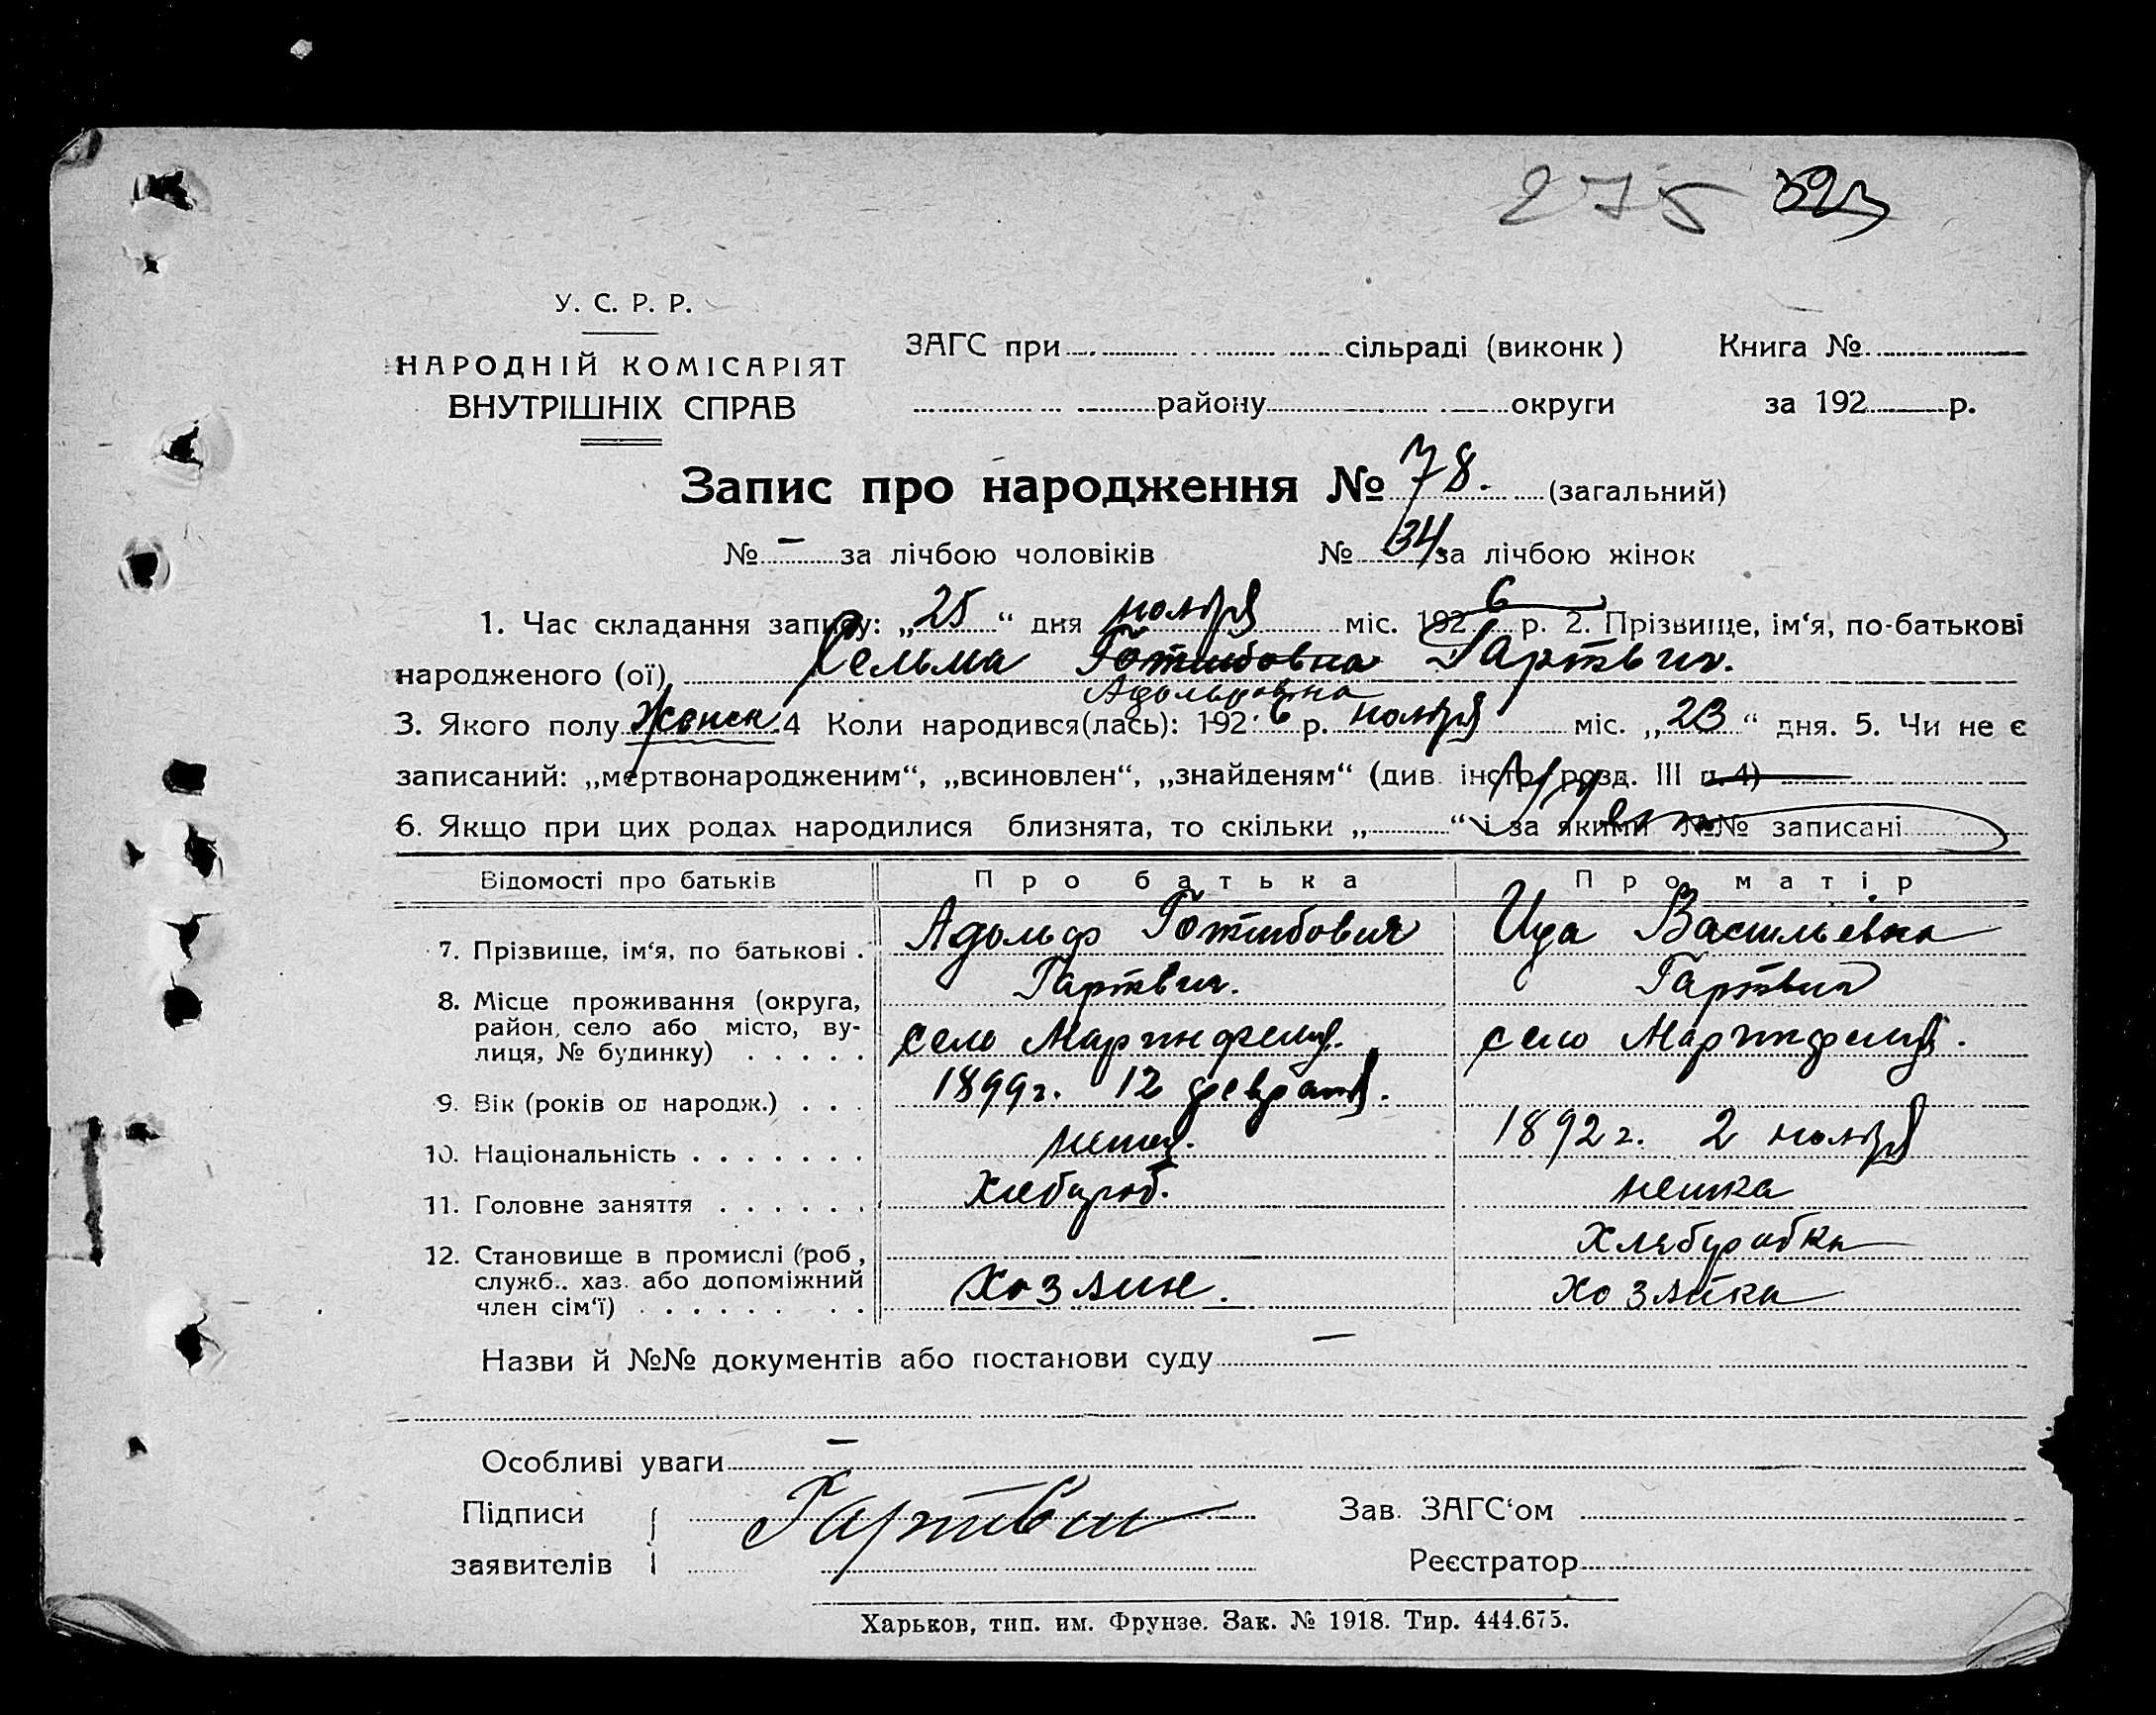 275 323
У. С. Р. Р.
НАРОДНІЙ КОМІСАРІЯТ
ВНУТРІШНІХ СПРАВ
ЗАГС при сільраді (виконк) Книга №
району округи за 192 р.
Запис про народження № 78. (загальний)
№ – за лічбою чоловіків № 34 за лічбою жінок
1. Час складання запису: „25“ дня ноября міс. 1926 р. 2. Прізвище, ім‘я, по-батькові
народженого (ої) Сельма Готлибовна Гартвиг.
Адольфовна
3. Якого полу женск. 4 Коли народився(лась): 1926 р. ноября міс. „23“ дня. 5. Чи не є
записаний: „мертвонародженим“, „всиновлен“, „знайденям“ (див. інстр. розд. III п. 4)
6. Якщо при цих родах народилися близнята, то скільки „ “ і за якими №№ записані
Відомості про батьків Про батька Про матір
7. Прізвище, ім‘я, по батькові . Адольф Готлибович Ида Васильевна
Гартвиг. Гартвиг
8. Місце проживання (округа,
район, село або місто, ву-
лиця, № будинку) . . . . . село Маринфельд. село Маринфельд.
9. Вік (років од народж.) . . . 1899 г. 12 февраля. 1892 г. 2 ноября
10. Національність . . . . . . . немец. немка
11. Головне заняття . . . . . . Хлебороб. хлеборобка
12. Становище в промислі (роб,
служб., хаз. або допоміжний
член сім‘ї) . . . . . . . . хозяин. хозяйка
Назви й №№ документів або постанови суду –
Особливі уваги –
Підписи Гартвиг Зав. ЗАГС‘ом
заявителів Реєстратор
Харьков, тип. им. Фрунзе. Зак. № 1918. Тир. 444.675.